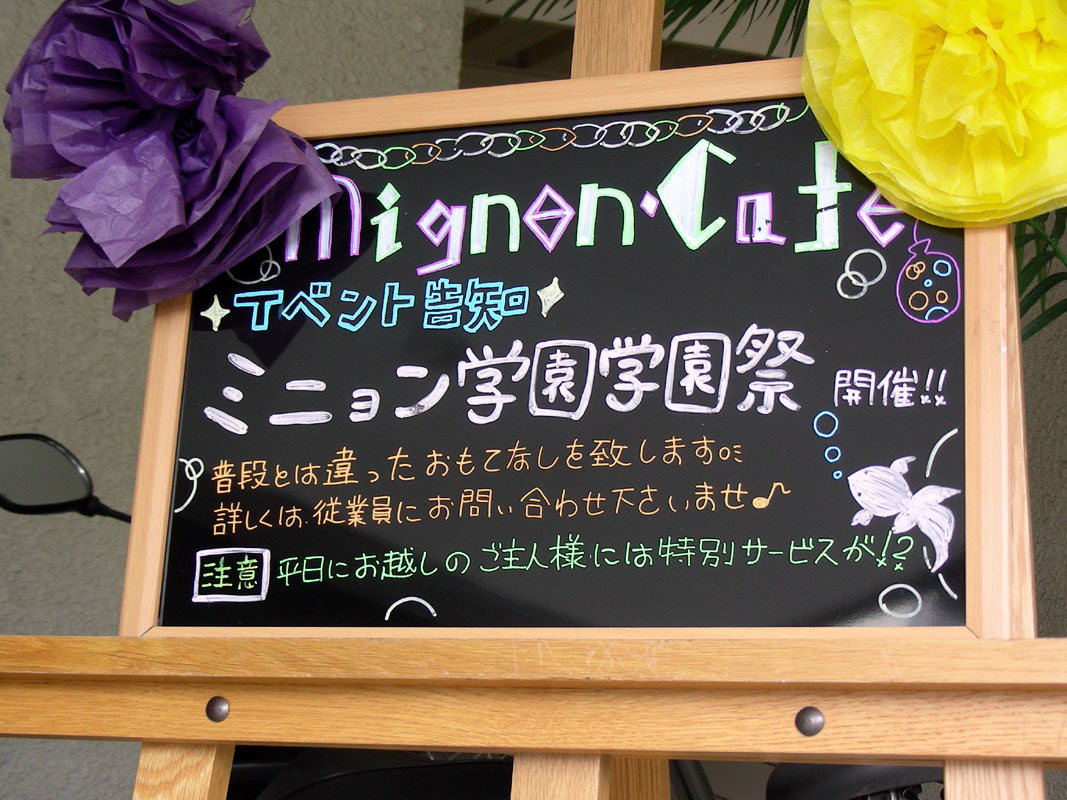 Mignon・Cafe
イベント告知
ミニョン学園学園祭 開催!!
普段とは違ったおもてなしを致します。
詳しくは従業員にお問い合わせ下さいませ♪
注意 平日にお越しのご主人様には特別サービスが!?